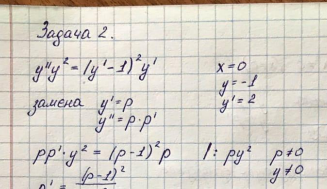 Задача 2.
y''y² = (y' - 1)² y' x = 0
y = -1
замена y' = p y' = 2
y'' = p · p'
pp' · y² = (p-1)² p |: py² p ≠ 0
y ≠ 0
p' = (p-1)²